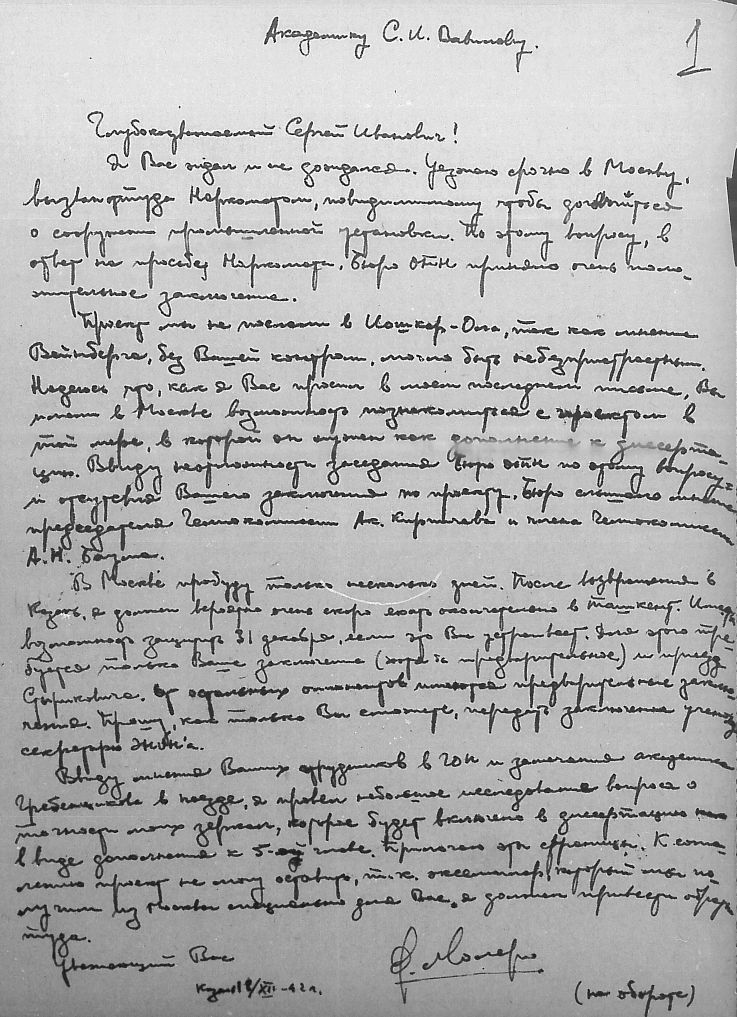 Академику С. И. Вавилову.
1
Глубокоуважаемый Сергей Иванович!
Я Вас ждал и не дождался. Уезжаю срочно в Москву,
вызван туда Наркоматом, повидимому чтобы договориться
о сооружении промышленной установки. По этому вопросу, в
ответ на просьбу Наркомата, Бюро ОТН приняло очень поло-
жительное заключение.
Проект мы не послали в Йошкар-Ола, так как мнение
Вейнберга, без Вашей контроли, могло быть небезпристрастным.
Надеюсь что, как я Вас просил в моем последнем письме, Вы
имели в Москве возможность познакомиться с проектом в
той мере, в которой он нужен как дополнение к диссерта-
ции. Ввиду неотложности заседания Бюро ОТН по этому вопросу
и отсутствия Вашего заключения по проекту, Бюро слышало мнение
председателя Гелиокомиссии Ак. Кирпичева и члена Гелиокомиссии
А. Н.
В Москве пробуду только несколько дней. После возвращения в
Казань, я должен вероятно очень скоро ехать окончательно в Ташкент. Имею
возможность защищать 31 декабря, если это Вы устраивает. Для этого тре-
буется только Ваше заключение (хотя бы предварительное) и приезд
Сыриковича. От остальных оппонентов имеются предварительные заклю-
чения. Прошу, как только Вы сможете, передать заключение ученому
секретарю ЭНИН'а.
Ввиду мнения Ваших сотрудников в ГОИ и замечания академика
Гребенщикова в поезде, я провел небольшое исследование вопроса о
точности моих зеркал, которое будет включено в диссертацию
в виде дополнения к 5-ой главе. Прилагаю эти страницы. К сожа-
лению проект не могу оставить, т.к. экземпляр, который мы по-
лучили из Москвы специально для Вас, я должен привести обратно
туда.
Уважающий Вас
Ф. Молеро
Казань /XII-42 г.
(на обороте)